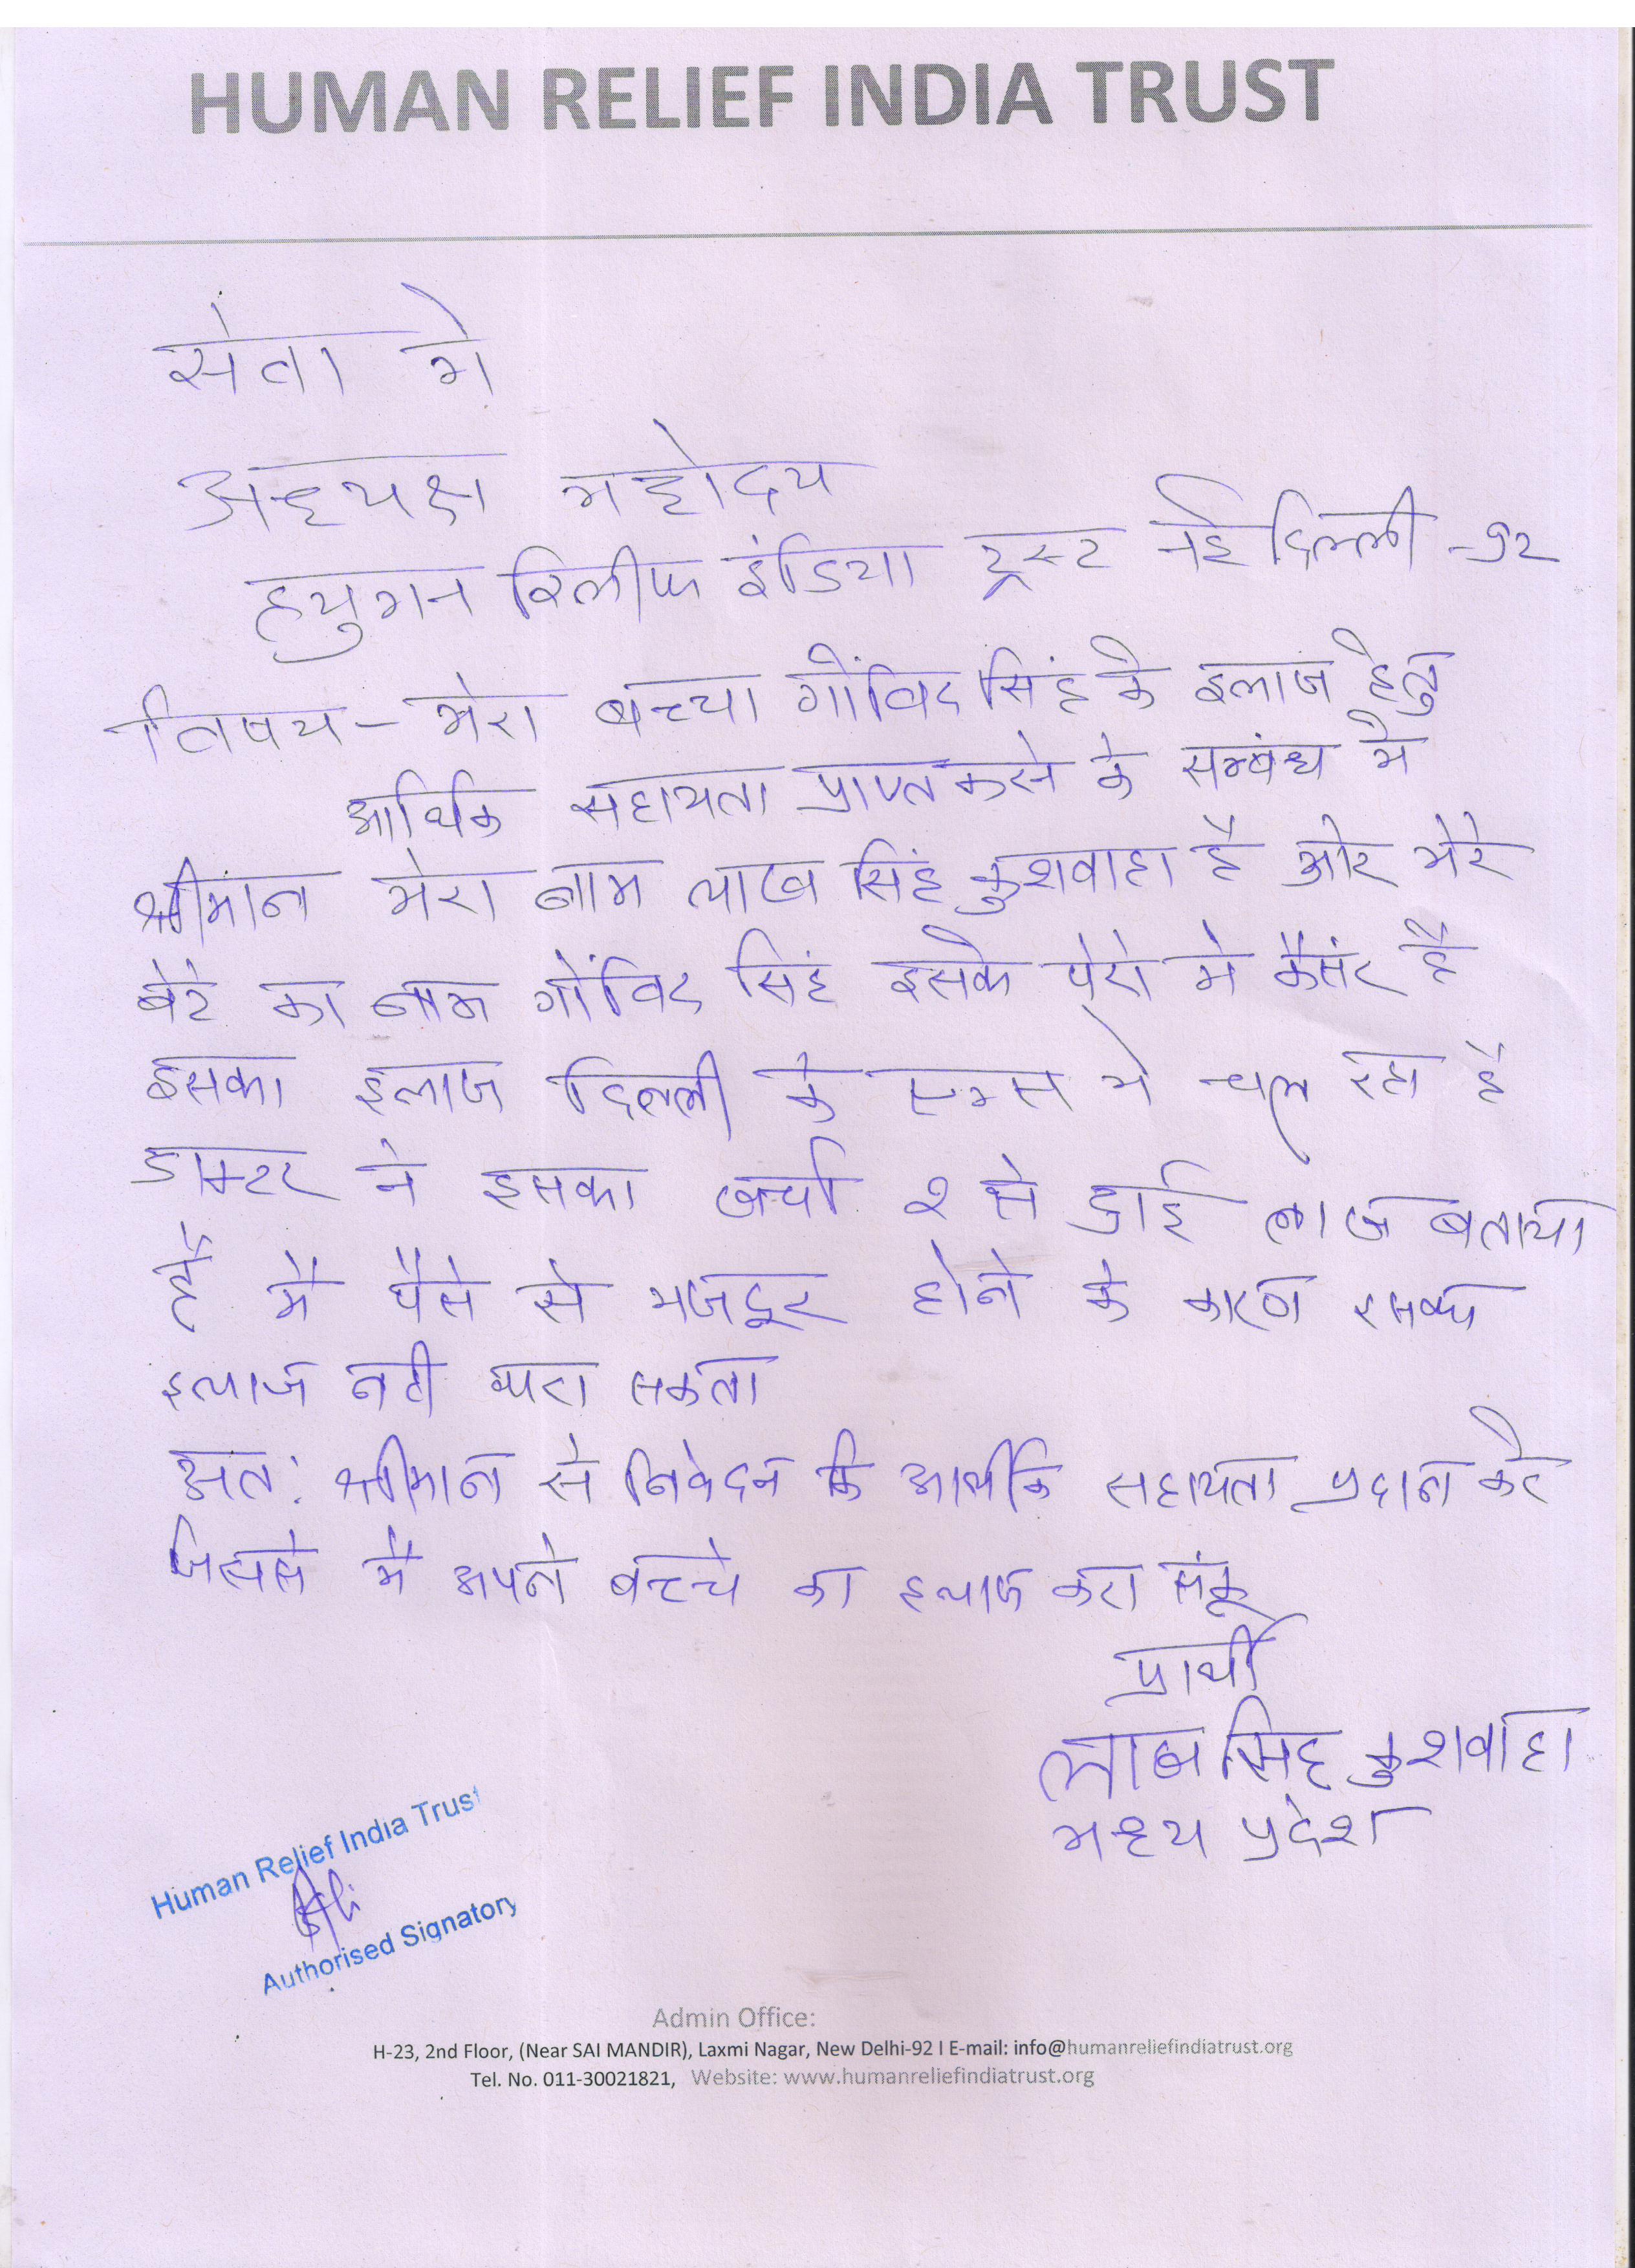 HUMAN RELIEF INDIA TRUST
सेवा मे
अध्यक्ष महोदय
हयुमन रिलीफ इंडिया ट्रस्ट नई दिल्ली -92
विषय - मेरा बच्चा गोंविद सिंह के इलाज हेतु
आर्थिक सहायता प्राप्त करने के सम्बंध मे
श्रीमान मेरा नाम लाख सिंह कुशवाहा है और मेरे
बेटे का नाम गोंविद सिंह इसके पैरो मे कैसंर है
इसका इलाज दिल्ली के एम्स मे चल रहा है
डाक्टर ने इसका खर्चा २ से ढाई लाख बताया
है मै पैसे से मजदूर होने के कारण इसका
इलाज नही करा सकता
अत: श्रीमान से निवेदन कि आर्थीक सहायता प्रदान करे
जिससे मै अपने बच्चे का इलाज करा संकू
प्रार्थी
लाख सिंह कुशवाहा
मध्य प्रदेश
Human Relief India Trust
Authorised Signatory
Admin Office:
H-23, 2nd Floor, (Near SAI MANDIR), Laxmi Nagar, New Delhi-92 I E-mail: info@humanreliefindiatrust.org
Tel. No. 011-30021821, Website: www.humanreliefindiatrust.org